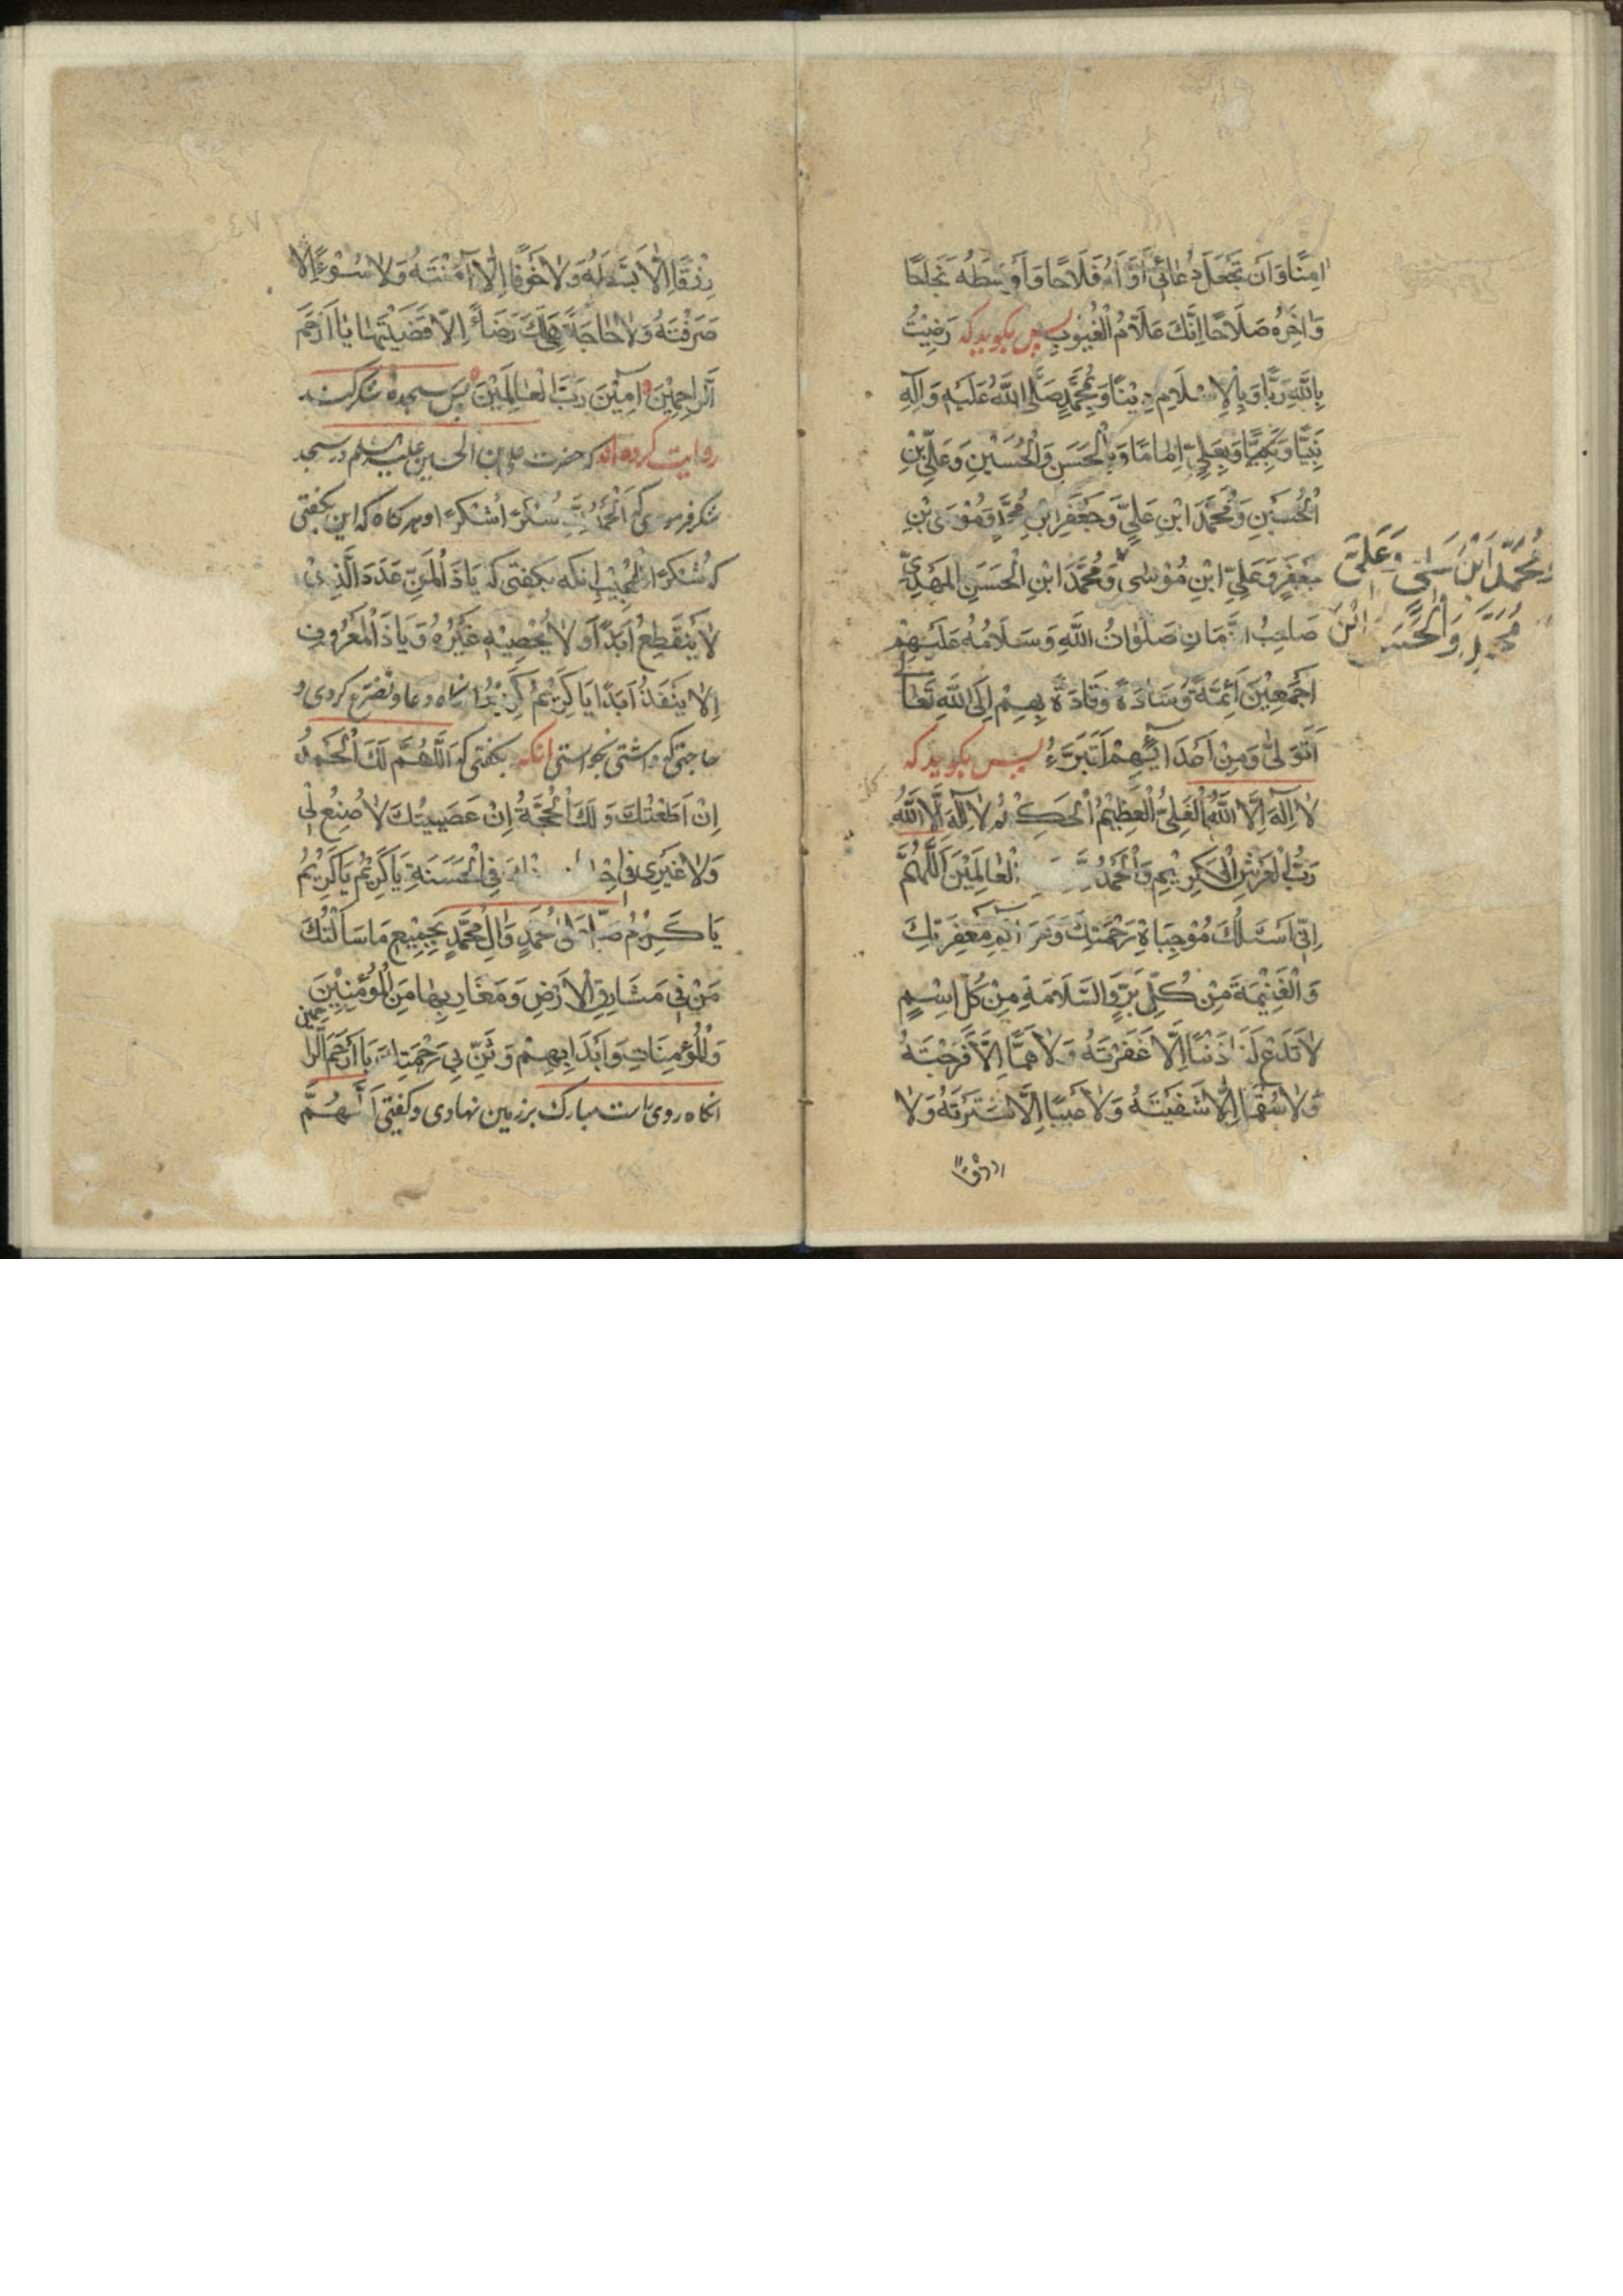 امِنًا وَاَنْ تَجْعَلَ دُعَائِي اَوَّلَهُ فَلَاحًا وَاَوْسَطُهُ نَجَاحًا
وَاٰخِرُهُ صَلَاحًا اِنَّكَ عَلَّامُ الْغُيُوبِ پس بكويد كه رَضِيْتُ
بِاللّٰهِ رَبًّا وَبِالْاِسْلَامِ دِيْنًا وَبِمُحَمَّدٍ صَلَّى اللّٰهُ عَلَيْهِ وَاٰلِهِ
نَبِيًّا وَبِعَلِيٍّ اِمَامًا وَبِالْحَسَنِ وَالْحُسَيْنِ وَعَلِيِّ بْنِ
الْحُسَيْنِ وَمُحَمَّدَ ابْنِ عَلِيٍّ وَجَعْفَرِ ابْنِ مُحَمَّدٍ وَمُوْسَى بْنِ
جَعْفَرٍ وَعَلِيِّ ابْنِ مُوْسٰى وَمُحَمَّدَ ابْنِ الْحَسَنِ الْمَهْدِيِّ
وَمُحَمَّدِ ابْنِ عَلِيٍّ وَعَلِيِّ
ابْنَ مُحَمَّدٍ وَالْحَسَنِ
صَاحِبُ الزَّمَانِ صَلَوَاتُ اللّٰهِ وَسَلَامُهُ عَلَيْهِمْ
اَجْمَعِيْنَ اَئِمَّةً وَسَادَةً وَقَادَةً بِهِمْ اِلَى اللّٰهِ تَعَالٰى
اَتَوَلّٰى وَمِنْ اَعْدَائِهِمْ اَتَبَرَّءُ پس بكويد كه
لَا اِلٰهَ اِلَّا اللّٰهُ الْعَلِيُّ الْعَظِيْمُ لَا اِلٰهَ اِلَّا اللّٰهُ
رَبُّ الْعَرْشِ الْكَرِيْمِ وَالْحَمْدُ الْعَالَمِيْنَ اَللّٰهُمَّ
اِنِّي اَسْئَلُكَ مُوْجِبَاةِ رَحْمَتِكَ وَعَزَائِمِ مَغْفِرَتِكَ
وَالْغَنِيْمَةَ مِنْ كُلِّ بِرٍّ وَالسَّلَامَةِ مِنْ كُلِّ اِسْمٍ
لَا تَدَعْ لَنَا ذَنْبًا اِلَّا غَفَرْتَهُ وَلَا هَمًّا اِلَّا فَرَّجْتَهُ
وَلَا سُقْمًا اِلَّا شَفَيْتَهُ وَلَا عَيْبًا اِلَّا سَتَرْتَهُ وَلَا
رِزْقًا
رِزْقًا اِلَّا بَسَطْتَهُ وَلَا خَوْفًا اِلَّا اٰمَنْتَهُ وَلَا سُوْءًا اِلَّا
صَرَفْتَهُ وَلَا حَاجَةً هِيَ لَكَ رِضَاءً اِلَّا قَضَيْتَهَا يَا اَرْحَمَ
الرَّاحِمِيْنَ اٰمِيْنَ رَبَّ الْعَالَمِيْنَ پس سجده شكر كند
روايت كرده اند كه حضرت علی بن الحسين عليه السلم در سجد
شكر فرمودی كه اَلْحَمْدُ لِلّٰهِ شُكْرًا شُكْرًا و هركاه كه اين بكفتی
كه شُكْرًا لِلْمُجِيْبِ انكه بكفتی كه يَا ذَا الْمَنِّ عَدَدَ الَّذِيْ
لَا يَنْقَطِعُ اَبَدًا وَلَا يُحْصِيْهِ غَيْرُهُ وَيَا ذَا الْمَعْرُوْفِ
لَا يَنْفَدُ اَبَدًا يَا كَرِيْمُ كَرِيْمُ انكاه دعا و تضرع كردی و
حاجتی كه داشتی بخواستی انكه بكفتی كه اَللّٰهُمَّ لَكَ الْحَمْدُ
اِنْ اَطَعْتُكَ وَلَكَ الْحُجَّةُ اِنْ عَصَيْتُكَ لَا صُنْعَ لِيْ
وَلَا غَيْرِي فِي فِي الْحَسَنَةِ يَا كَرِيْمُ يَا كَرِيْمُ
يَا كَرِيْمُ صَلِّ عَلٰى مُحَمَّدٍ وَاٰلِ مُحَمَّدٍ بِجَمِيْعِ مَا سَاَلْتُكَ
مَنْ فِي مَشَارِقِ الْاَرْضِ وَمَغَارِبِهَا مِنَ الْمُؤْمِنِيْنَ
وَالْمُؤْمِنَاتِ وَابْدَا بِهِمْ وَثَنِّ بِي بِرَحْمَتِكَ يَا اَرْحَمَ الرَّاحِمِيْنَ
انكاه روی راست مبارك بر زمين نهادی و كفتی اَللّٰهُمَّ